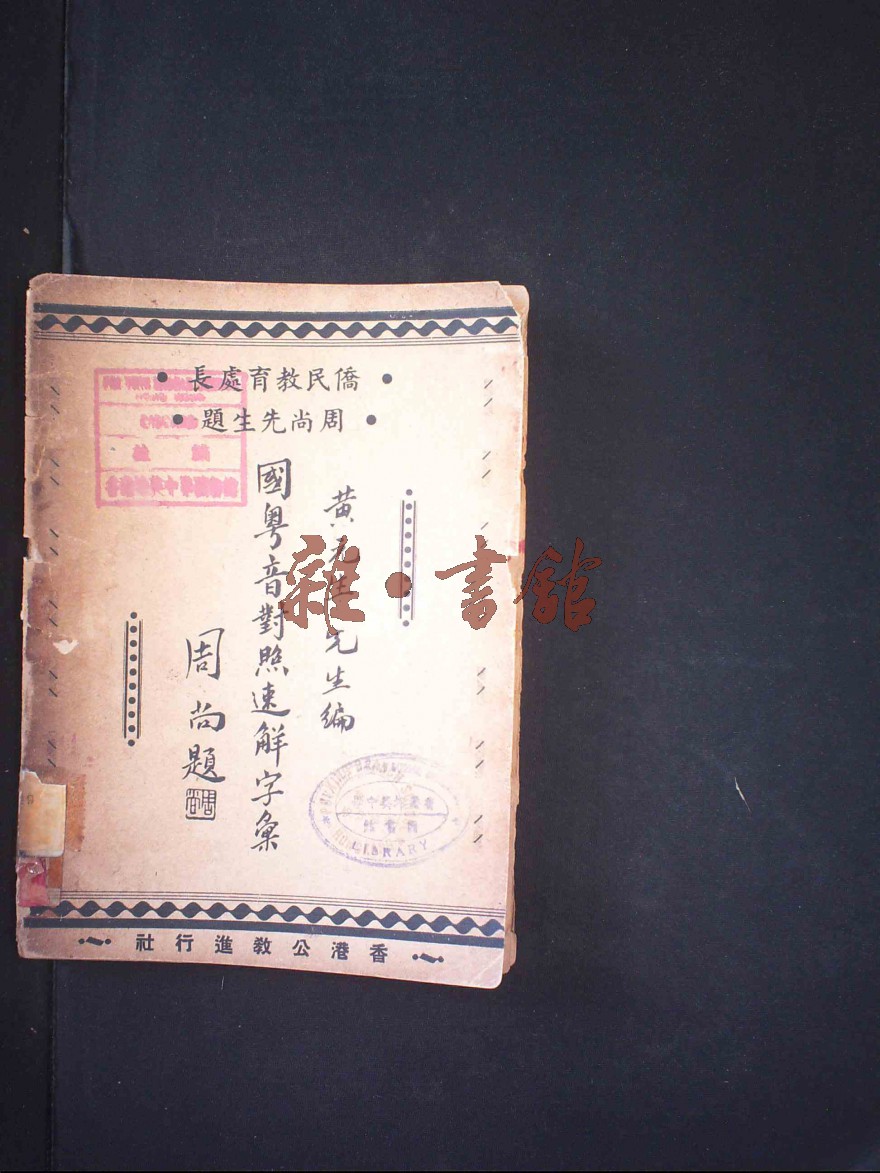 僑民教育處長
周尚先生題
黄元生先生編
國粤音對照速解字彙
周尚題
香港公教進行社
雜·書館
LIBRARY